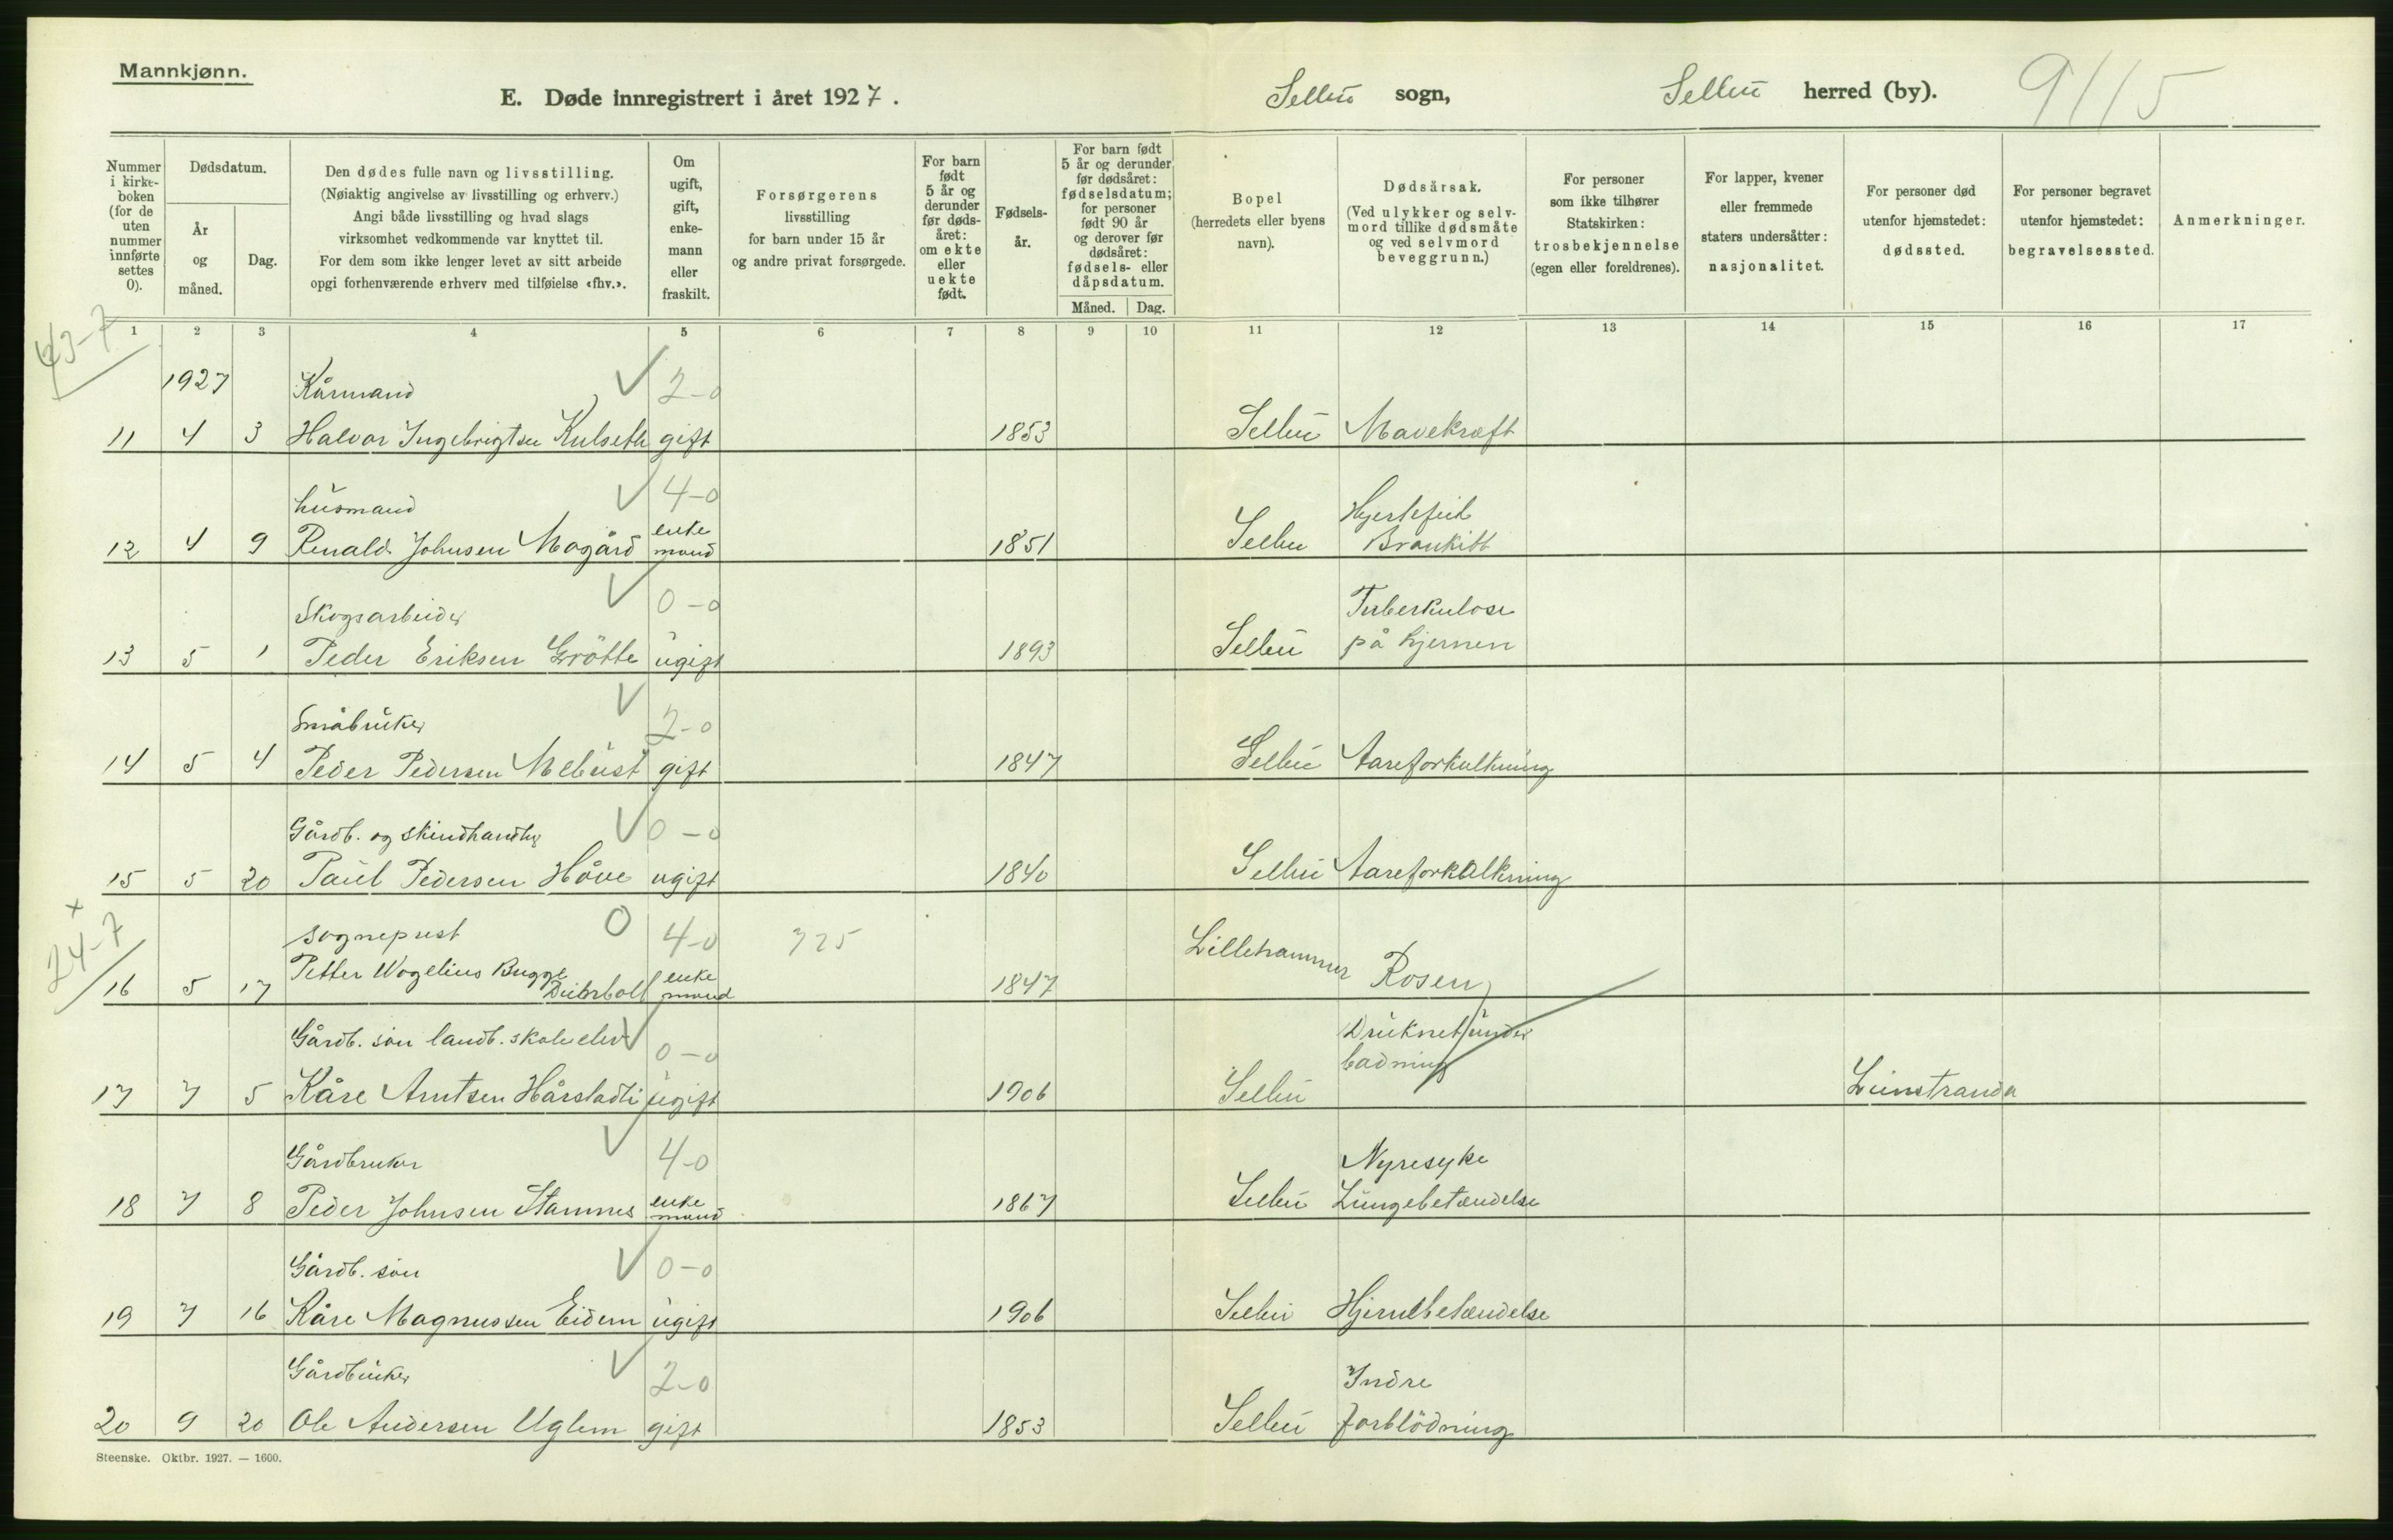 Mannkjønn.
E. Døde innregistrert i året 1927.
Selbu sogn,
Selbu herred (by).
9115
Nummer i kirke-boken (for de uten nummer innførte settes 0).
Dødsdatum.
År og måned.
Dag.
Den dødes fulle navn og livsstilling.
(Nøiaktig angivelse av livsstilling og erhverv.)
Angi både livsstilling og hvad slags
virksomhet vedkommende var knyttet til.
For dem som ikke lenger levet av sitt arbeide
opgi forhenværende erhverv med tilføielse «fhv.».
Om ugift, gift, enke-mann eller fraskilt.
Forsørgerens
livsstilling
for barn under 15 år
og andre privat forsørgede.
For barn født 5 år og derunder før døds-året: om ekte eller uekte født.
Fødsels-år.
For barn født 5 år og derunder før dødsåret: fødselsdatum; for personer født 90 år og derover før dødsåret: fødsels- eller dåpsdatum.
Måned.
Dag.
Bopel
(herredets eller byens
navn).
Dødsårsak.
(Ved ulykker og selv-
mord tillike dødsmåte
og ved selvmord
beveggrunn.)
For personer
som ikke tilhører
Statskirken:
trosbekjennelse
(egen eller foreldrenes).
For lapper, kvener
eller fremmede
staters undersåtter:
nasjonalitet.
For personer død
utenfor hjemstedet:
dødssted.
For personer begravet
utenfor hjemstedet:
begravelsessted.
Anmerkninger.
1 2 3 4 5 6 7 8 9 10 11 12 13 14 15 16 17
43-7
1927 Kårmand 2-0
11 4 3 Halvor Ingebrigtsen Kulseth gift 1853 Selbu Mavekræft
husmand 4-0 Hjertefeil
12 4 9 Renald Johnsen Mogård enke mand 1851 Selbu Bronkitt
Skogsarbeider 0-0 Tuberkulose
13 5 1 Peder Eriksen Grötte ugift 1893 Selbu på hjernen
Småbruker 2-0
14 5 4 Peder Pedersen Mebust gift 1847 Selbu Aareforkalkning
Gårdb. og skindhandler 0-0
15 5 20 Paul Pedersen Håve ugift 1840 Selbu Aareforkalkning
x
24-7
sogneprest 0 4-0 325
16 5 17 Petter Wogelius Bugge enke mand 1847 Lillehammer Rosen
Gårdb. sön landb. skoleelev 0-0 Druknet under
badning
17 7 5 Kåre Arntsen Hårstadli ugift 1906 Selbu Leinstranda
Gårdbruker 4-0 Nyresyke
18 7 8 Peder Johnsen Stamnes enke mand 1867 Selbu Lungebetændelse
Gårdb. sön 0-0
19 7 16 Kåre Magnussen Eidem ugift 1906 Selbu Hjernebetændelse
Gårdbruker 2-0 Indre
20 9 20 Ole Andersen Uglem gift 1853 Selbu forblödning
Steenske. Oktbr. 1927. — 1600.